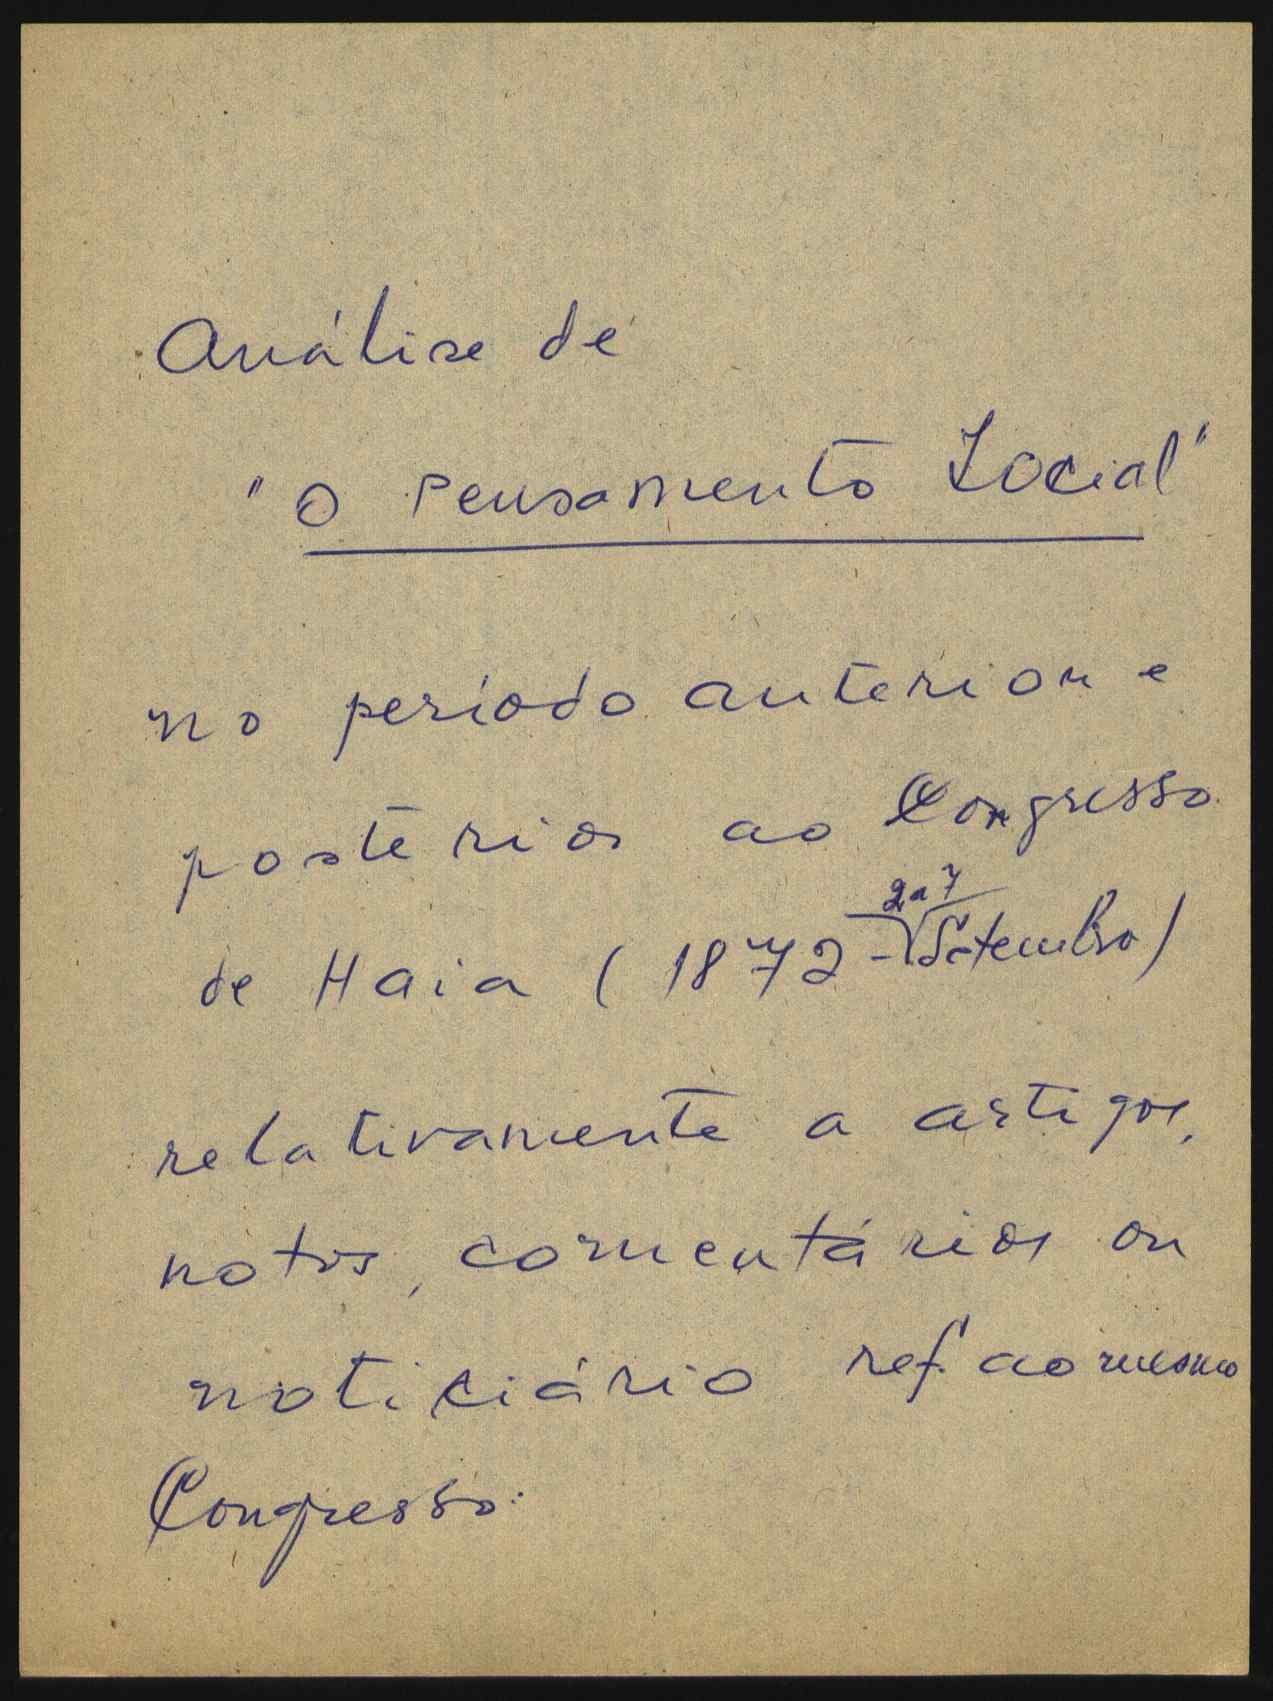 Análise de
"O Pensamento Social"
no período anterior e
posterior ao Congresso
2 a 7
de Haia (1872 - Setembro)
relativamente a artigos,
notas, comentários ou
noticiário ref. ao mesmo
Congresso.